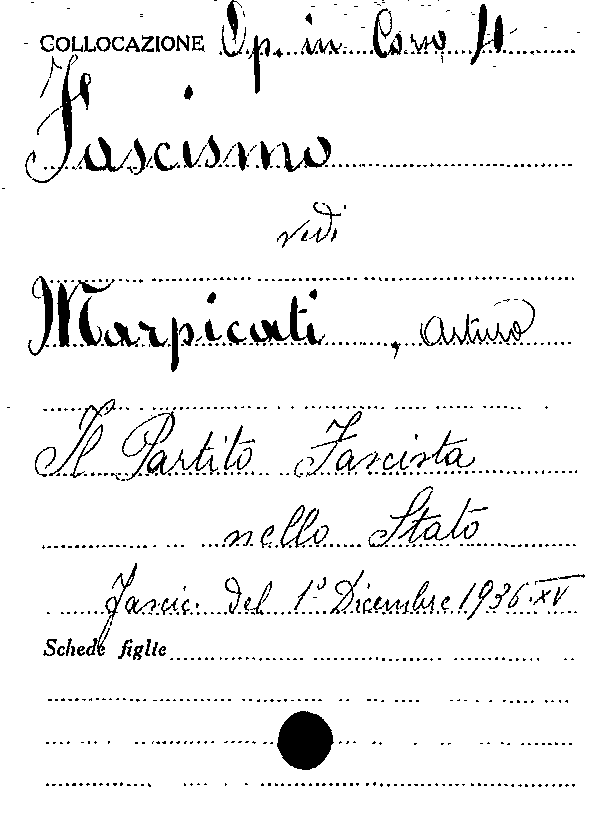 COLLOCAZIONE Op. in Corso 4
Fascismo
vedi
Marpicati, Arturo
Il Partito Fascista
nello Stato
Fascic. del 1º Dicembre 1936-XV
Schede figlie